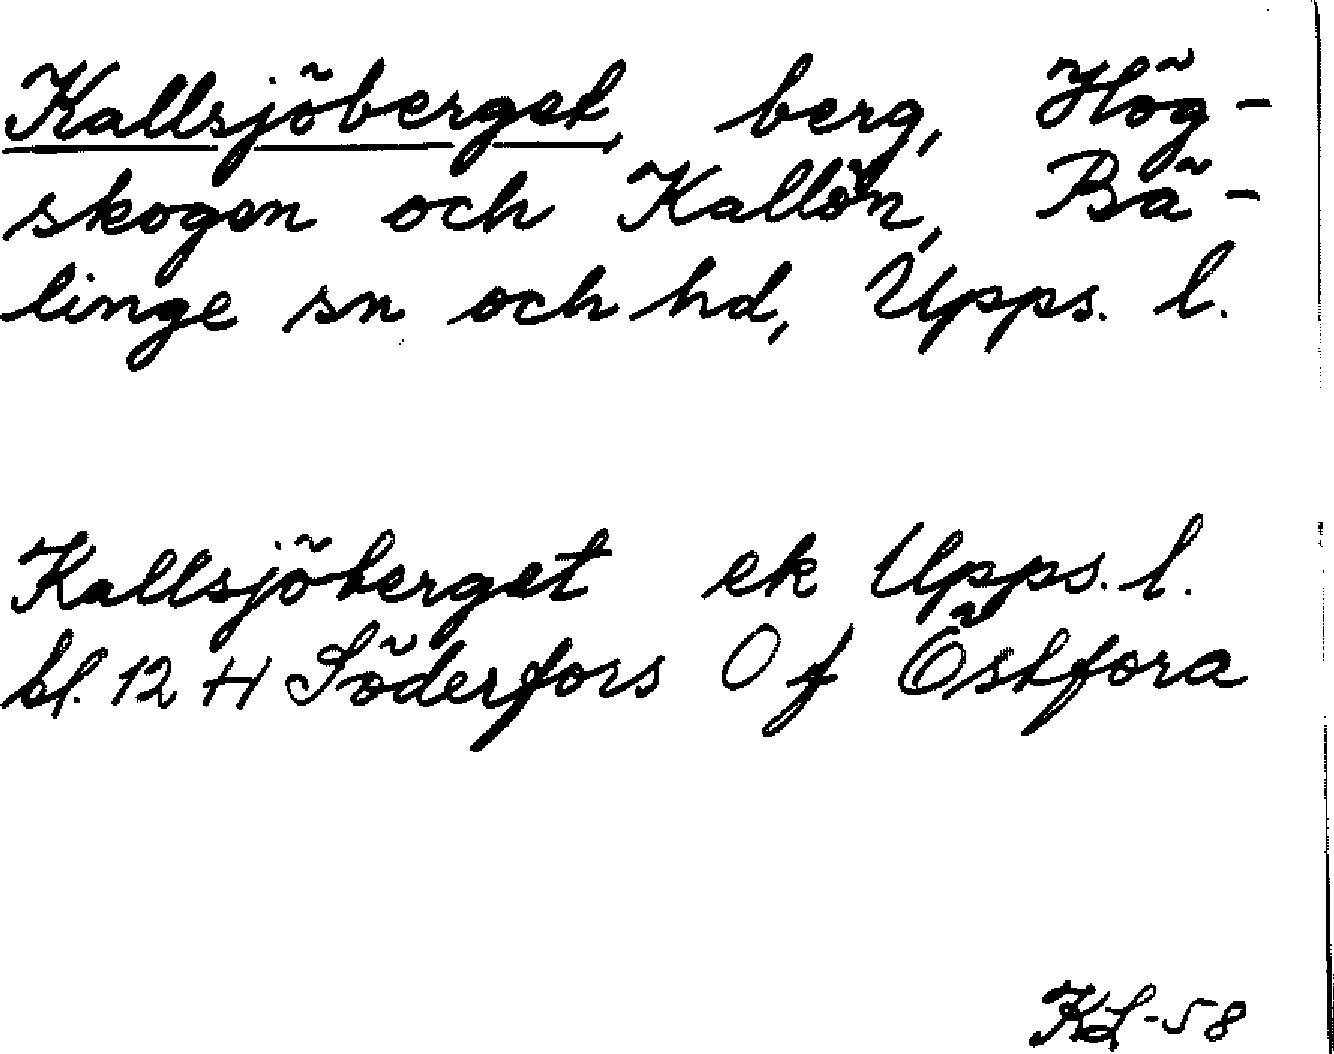 Kallsjöberget, berg, Hög-
skogen och Kallön, Bä-
linge sn och hd, Upps. l.
Kallsjöberget ek Upps. l.
bl. 12 H Söderfors O f Östfora
KL-58